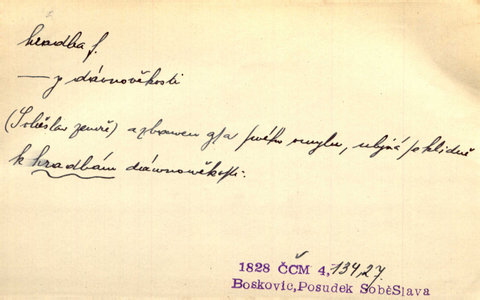 hradba f.
— z dávnověkosti
(Soběslav zemře) a zbawen gsa swého omylu, ubjrá se klidně
k hradbám dáwnowěkosti.
1828 ČČM 4, 134,27.
Boskovic, Posudek SoběSlava